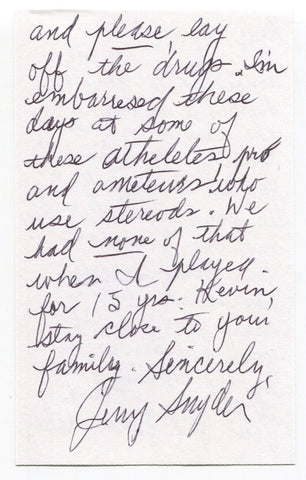 and please, lay
off the drugs. I'm
embarresed these
days at some of
these atheletes, pro
and ameteurs, who
use sterods. We
had none of that
when I played.
for 15 yrs. Kevin,
stay close to your
family. Sincerely,
Jerry Snyder